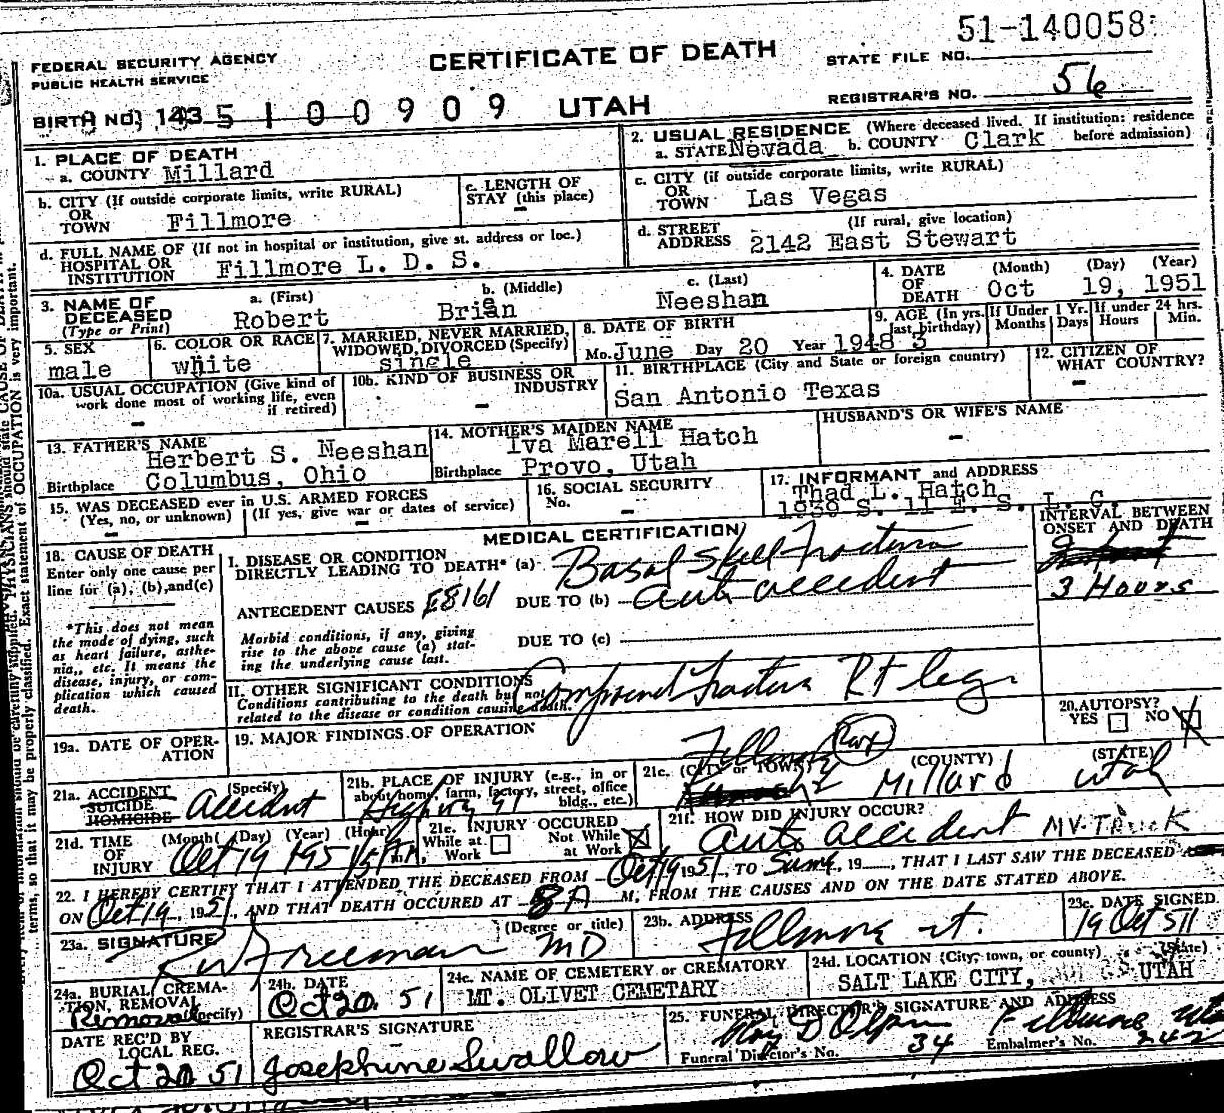 51-140058
FEDERAL SECURITY AGENCY
PUBLIC HEALTH SERVICE
CERTIFICATE OF DEATH
STATE FILE NO.
BIRTH NO. 143 5 1 0 0 9 0 9 UTAH
REGISTRAR'S NO. 56
1. PLACE OF DEATH
a. COUNTY Millard
2. USUAL RESIDENCE (Where deceased lived. If institution: residence before admission)
a. STATE Nevada b. COUNTY Clark
b. CITY (If outside corporate limits, write RURAL)
OR
TOWN Fillmore
c. LENGTH OF
STAY (this place)
-
c. CITY (if outside corporate limits, write RURAL)
OR
TOWN Las Vegas
d. FULL NAME OF (If not in hospital or institution, give st. address or loc.)
HOSPITAL OR
INSTITUTION Fillmore L. D. S.
d. STREET (If rural, give location)
ADDRESS 2142 East Stewart
3. NAME OF DECEASED
(Type or Print)
a. (First) Robert
b. (Middle) Brian
c. (Last) Neeshan
4. DATE OF DEATH
(Month) (Day) (Year)
Oct 19, 1951
5. SEX
male
6. COLOR OR RACE
white
7. MARRIED, NEVER MARRIED,
WIDOWED, DIVORCED (Specify)
single
8. DATE OF BIRTH
Mo. June Day 20 Year 1948
9. AGE (In yrs. last birthday) 3
If Under 1 Yr. Months Days
If under 24 hrs. Hours Min.
10a. USUAL OCCUPATION (Give kind of
work done most of working life, even
if retired)
-
10b. KIND OF BUSINESS OR
INDUSTRY
-
11. BIRTHPLACE (City and State or foreign country)
San Antonio Texas
12. CITIZEN OF
WHAT COUNTRY?
-
13. FATHER'S NAME
Herbert S. Neeshan
Birthplace Columbus, Ohio
14. MOTHER'S MAIDEN NAME
Iva Marell Hatch
Birthplace Provo, Utah
HUSBAND'S OR WIFE'S NAME
-
15. WAS DECEASED ever in U.S. ARMED FORCES
(Yes, no, or unknown) (If yes, give war or dates of service)
- -
16. SOCIAL SECURITY
No. -
17. INFORMANT and ADDRESS
Thad L. Hatch
1939 S. 11 E. S. L. C.
MEDICAL CERTIFICATION
INTERVAL BETWEEN
ONSET AND DEATH
18. CAUSE OF DEATH
Enter only one cause per
line for (a), (b), and (c)
*This does not mean
the mode of dying, such
as heart failure, asthe-
nia, etc. It means the
disease, injury, or com-
plication which caused
death.
I. DISEASE OR CONDITION
DIRECTLY LEADING TO DEATH* (a) Basal Skull Fracture
3 Hours
ANTECEDENT CAUSES E8161 DUE TO (b) Auto accident
Morbid conditions, if any, giving
rise to the above cause (a) stat-
ing the underlying cause last.
DUE TO (c)
II. OTHER SIGNIFICANT CONDITIONS
Conditions contributing to the death but not
related to the disease or condition causing death.
Compound fracture Rt leg
19a. DATE OF OPER-
ATION
19. MAJOR FINDINGS OF OPERATION
20. AUTOPSY?
YES NO X
21a. ACCIDENT (Specify)
SUICIDE
HOMICIDE
Accident
21b. PLACE OF INJURY (e.g., in or
about home, farm, factory, street, office
bldg., etc.)
Highway 91
21c. (CITY or TOWN) (COUNTY) (STATE)
Fillmore Millard Utah
21d. TIME
OF
INJURY
(Month) (Day) (Year) (Hour)
Oct 19 1951 5 A m.
21e. INJURY OCCURED
While at Work
Not While at Work X
21f. HOW DID INJURY OCCUR?
Auto accident MV-TRUCK
22. I HEREBY CERTIFY THAT I ATTENDED THE DECEASED FROM Oct 19 1951, TO Same, 19__, THAT I LAST SAW THE DECEASED
ON Oct 19, 1951, AND THAT DEATH OCCURED AT 8 A M, FROM THE CAUSES AND ON THE DATE STATED ABOVE.
23a. SIGNATURE (Degree or title)
Freeman MD
23b. ADDRESS
Fillmore Ut.
23c. DATE SIGNED
19 Oct 51
24a. BURIAL, CREMA-
TION, REMOVAL
(Specify)
Removal
24b. DATE
Oct 20 51
24c. NAME OF CEMETERY or CREMATORY
MT. OLIVET CEMETARY
24d. LOCATION (City, town, or county) (State)
SALT LAKE CITY, UTAH
DATE REC'D BY
LOCAL REG.
Oct 20 51
REGISTRAR'S SIGNATURE
Josephine Swallow
25. FUNERAL DIRECTOR'S SIGNATURE AND ADDRESS
Fillmore Utah
Funeral Director's No. 34
Embalmer's No. 242